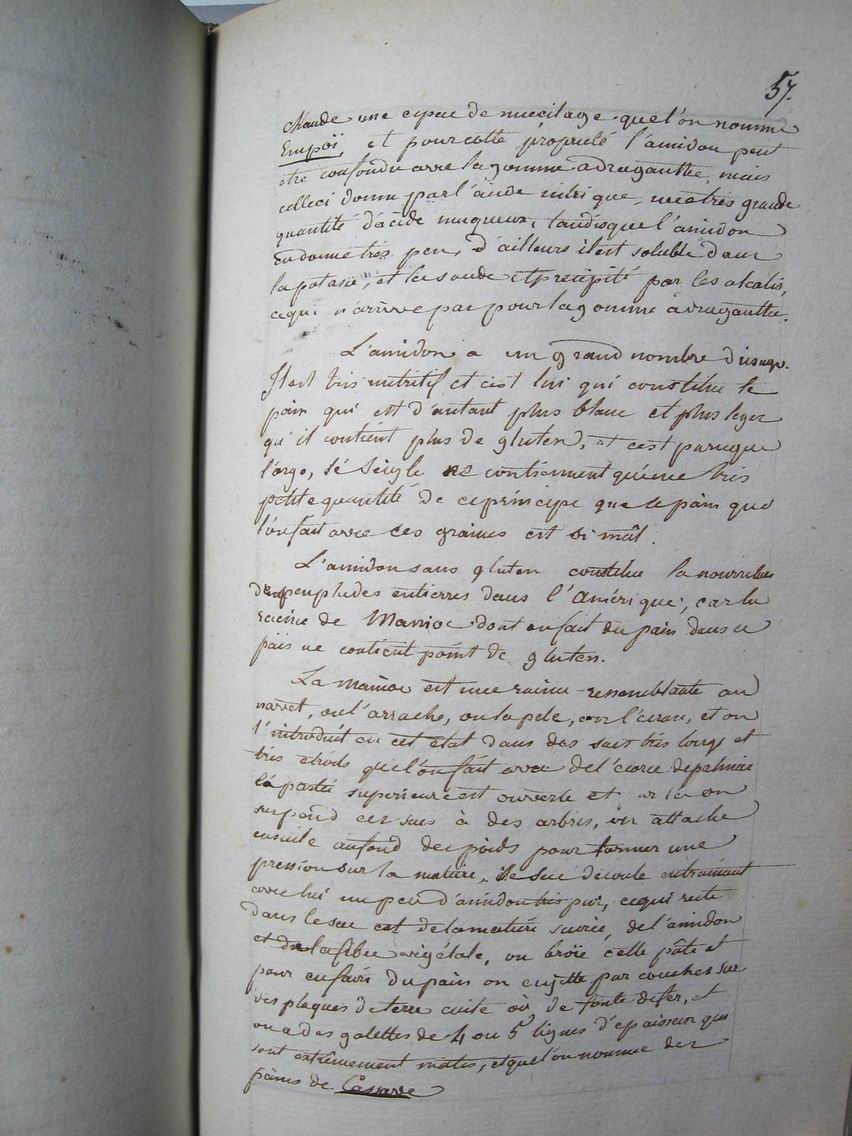 57.
chaude une espece de mucilage que l'on nomme
Empoï, et pour cette propriété l'amidon peut
etre confondu avec la gomme adraganthe, mais
celleci donne par l'acide nitrique, une très grande
quantité d'acide muqueux, tandisque l'amidon
en donne très peu, d'ailleurs il est soluble dans
la potasse, et la soude et precipité par les alcalis,
cequi n'arrive pas pour la gomme adraganthe.
L'amidon a un grand nombre d'usage.
Il est très nutritif et c'est lui qui constitue le
pain qui est d'autant plus blanc et plus leger
qu'il contient plus de gluten, et c'est parceque
l'orge, le seigle ne contiennent qu'une très
petite quantité de ceprincipe que le pain que
l'on fait avec ces graines est si mât.
L'amidon sans gluten constitue la nourriture
de peuplades entierres dans l'Amérique, car la
racine de Manioc dont on fait du pain dans ce
païs ne contient point de gluten.
La manioc est une racine ressemblante au
navet, on l'arrache, on la pele, on l'écrase, et on
l'introduit en cet état dans des sacs très longs et
très etroits que l'on fait avec de l'ecorce de palmier
la partie superieure est ouverte et on
suspend ces sacs à des arbres, on attache
ensuite au fond des poids pour former une
pression sur la matiere, le suc découle entrainant
avec lui un peu d'amidon très pur, cequi reste
dans le sac est de la matiere sucrée, de l'amidon
et de la fibre végétale, on broïe cette pâte et
pour en faire du pain on en jette par couches sur
des plaques de terre cuite où de fonte de fer, et
on a des galettes de 4 ou 5 lignes d'epaisseur qui
sont extrêmement mates, et que l'on nomme des
pains de Cassave